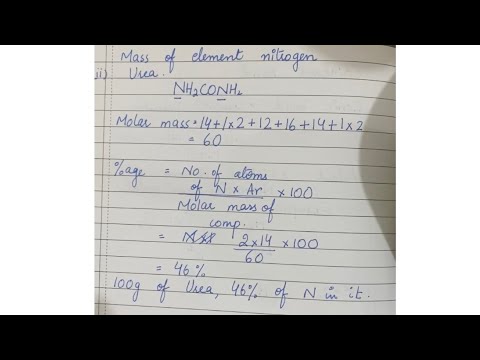 Mass of element nitrogen
ii) Urea.
NH2CONH2
Molar mass = 14+1×2+12+16+14+1×2
= 60
%age = No. of atoms
of N × Ar × 100
Molar mass of
comp.
= 2×14 × 100
60
= 46%
100g of Urea, 46% of N in it.